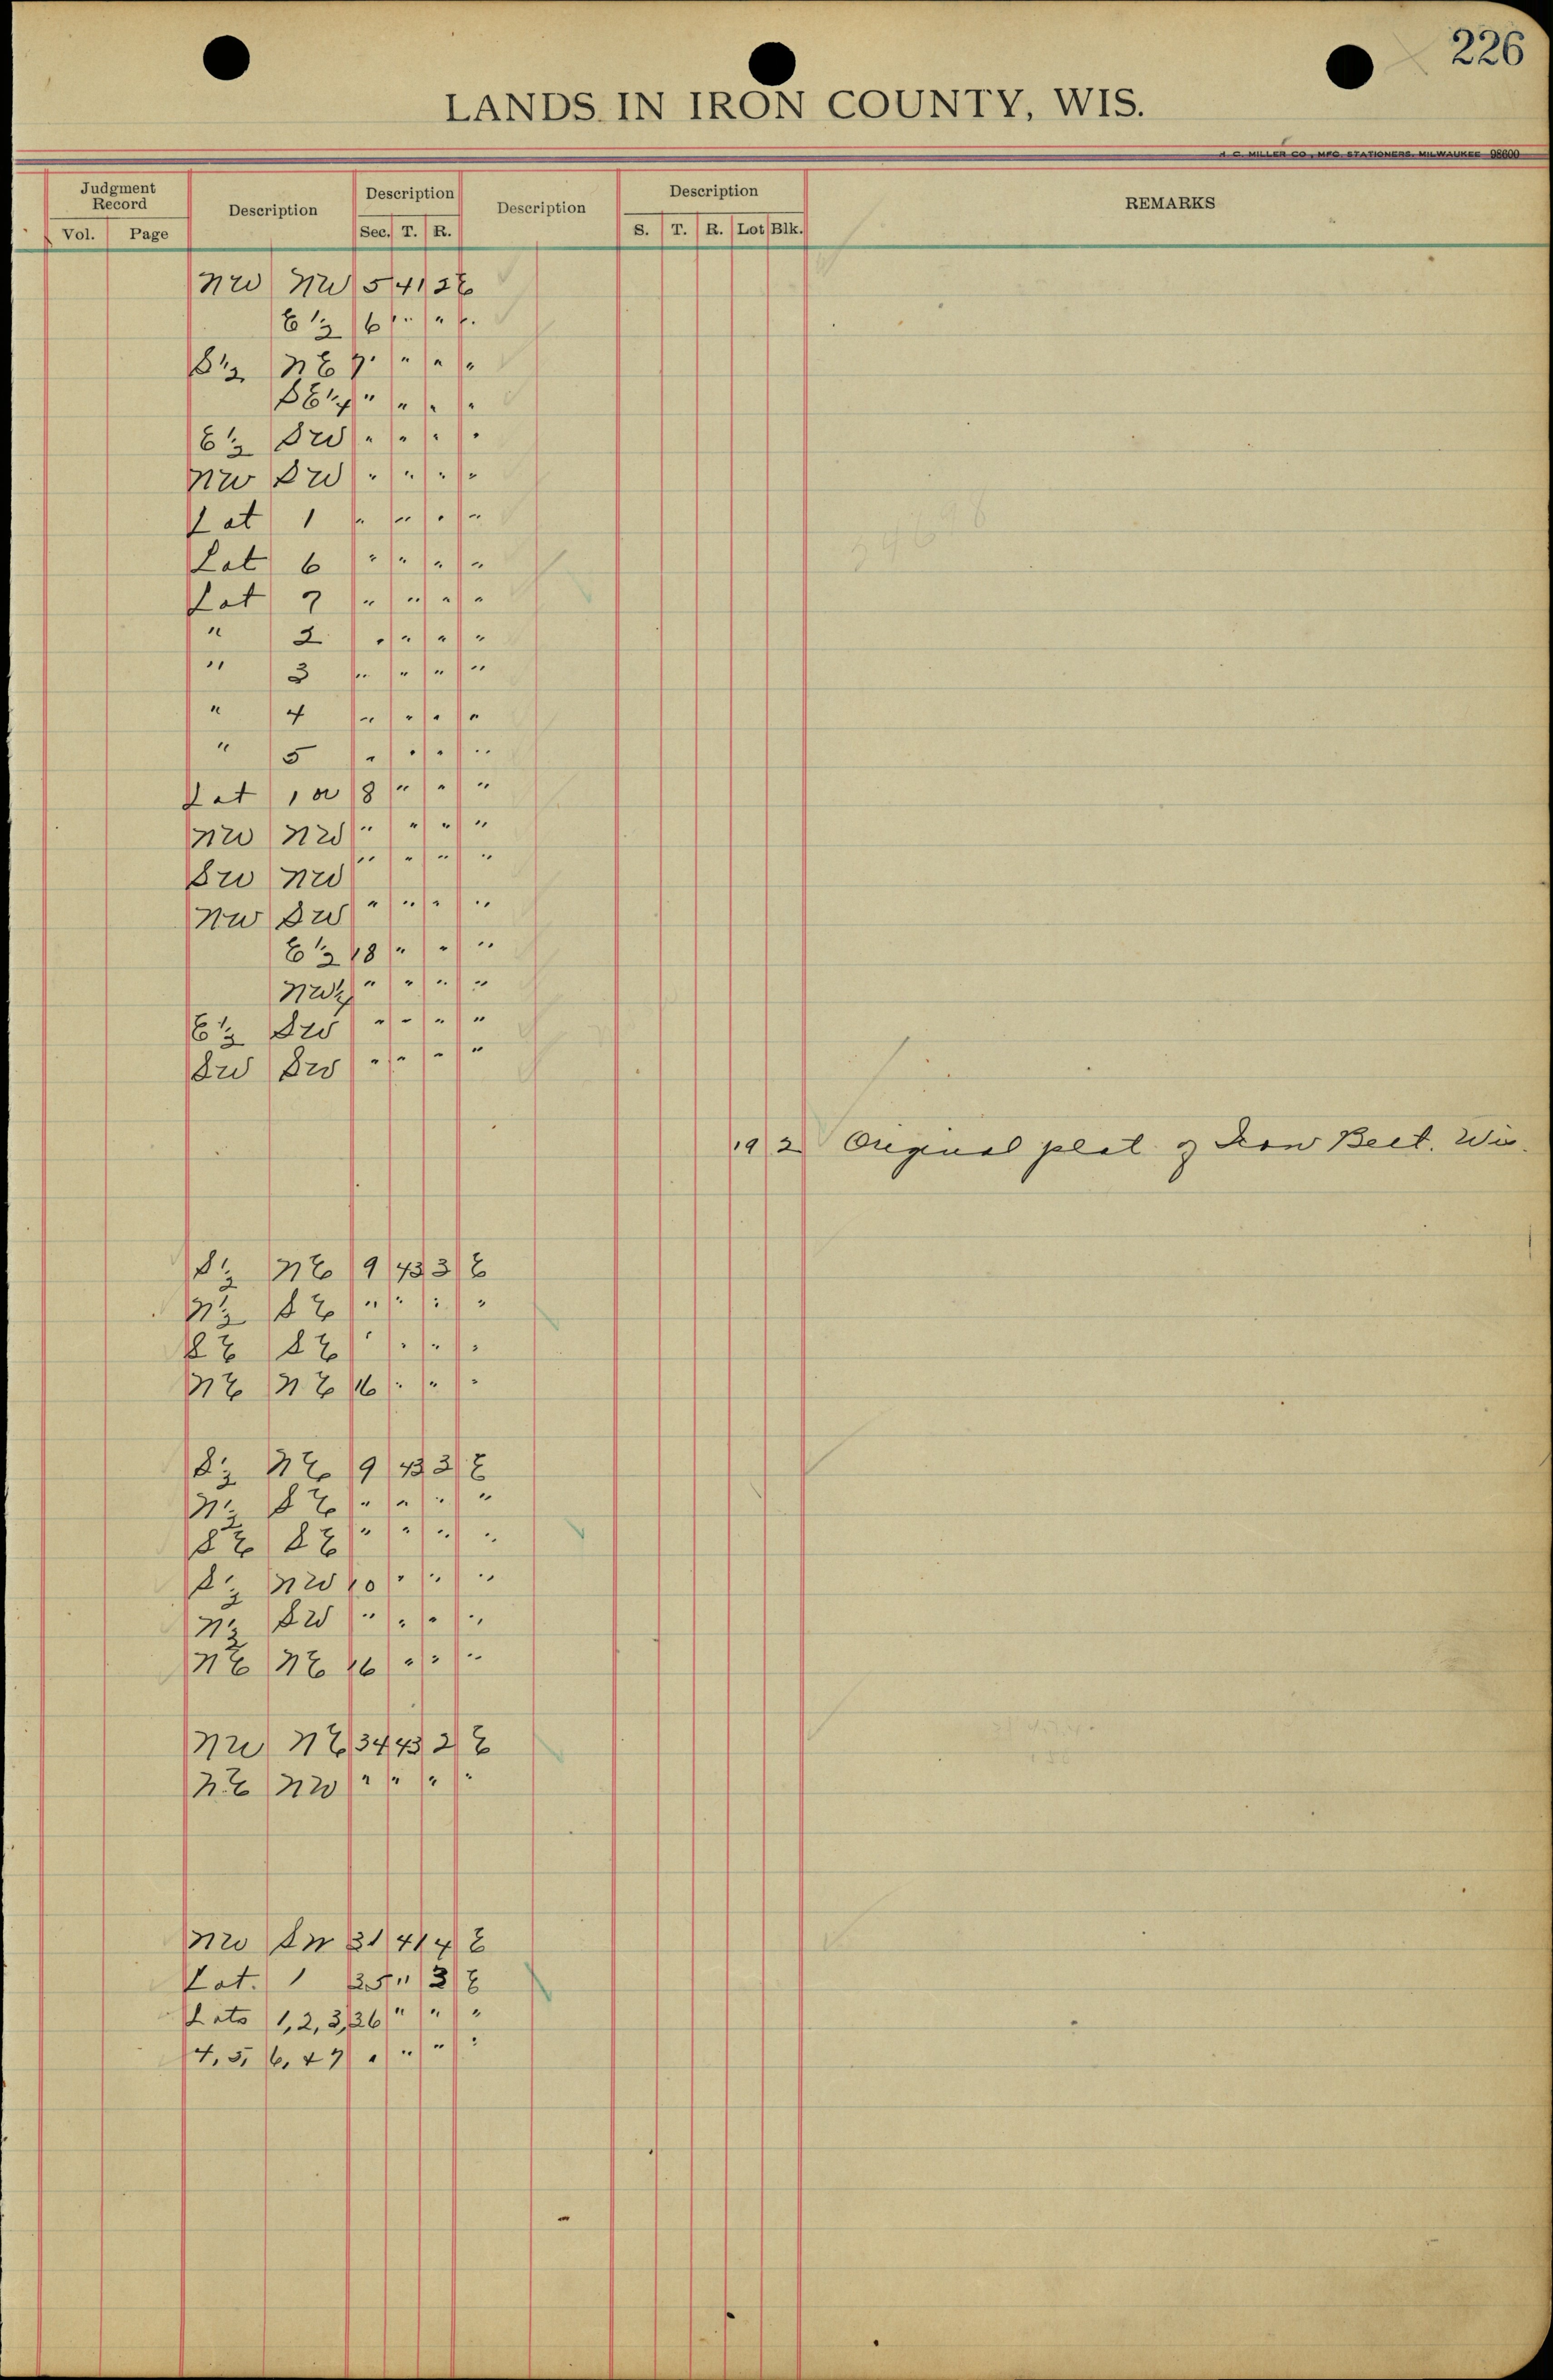 226
LANDS IN IRON COUNTY, WIS.
H. C. MILLER CO., MFG. STATIONERS, MILWAUKEE 98600
Judgment Record Description Description Description Description REMARKS
Vol. Page Sec. T. R. S. T. R. Lot Blk.
NW NW 5 41 3 E
E 1/2 6 " " "
S 1/2 NE 7 " " "
SE 1/4 " " " "
E 1/2 SW " " " "
NW SW " " " "
Lot 1 " " " "
Lot 6 " " " "
Lot 7 " " " "
" 2 " " " "
" 3 " " " "
" 4 " " " "
" 5 " " " "
Lot 1 or 8 " " "
NW NW " " " "
SW NW " " " "
NW SW " " " "
E 1/2 18 " " "
NW 1/4 " " " "
E 1/2 SW " " " "
SW SW " " " "
19 2 Original plat of Iron Belt. Wis.
S 1/2 NE 9 43 3 E
N 1/2 SE " " " "
SE SE " " " "
NE NE 16 " " "
S 1/2 NE 9 43 3 E
N 1/2 SE " " " "
SE SE " " " "
S 1/2 NW 10 " " "
N 1/2 SW " " " "
NE NE 16 " " "
NW NE 34 43 2 E
NE NW " " " "
NW SW 31 41 4 E
Lot. 1 25 " 3 E
Lots 1, 2, 3, 36 " " "
4, 5, 6, + 7 " " " "